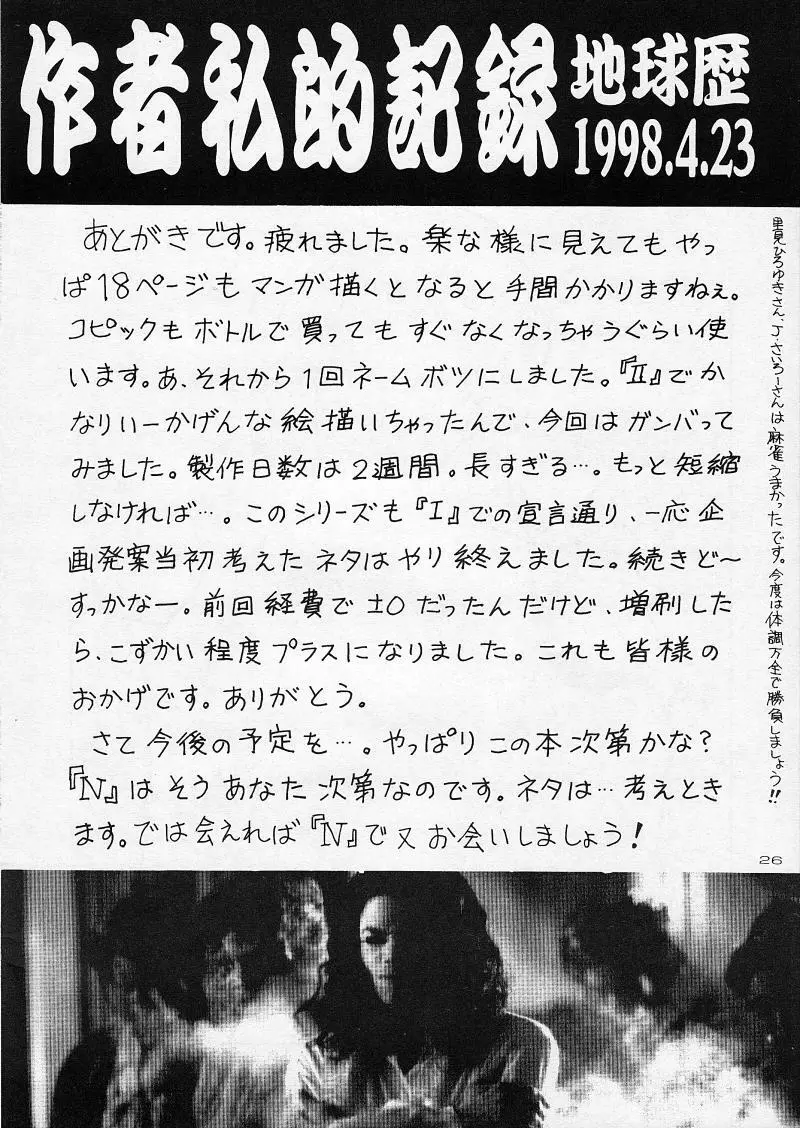 作者私的記録 地球歴
1998.4.23
あとがきです。疲れました。楽な様に見えてもやっ
ぱ18ページもマンガ描くとなると手間かかりますねぇ。
コピックもボトルで買ってもすぐなくなっちゃうぐらい使
います。あ、それから1回ネームボツにしました。『Ⅱ』でか
なりいーかげんな絵描いちゃったんで、今回はガンバって
みました。製作日数は2週間。長すぎる…。もっと短縮
しなければ…。このシリーズも『I』での宣言通り、一応企
画発案当初考えたネタはやり終えました。続きど〜
すっかなー。前回経費で±0だったんだけど、増刷した
ら、こずかい程度プラスになりました。これも皆様の
おかげです。ありがとう。
さて今後の予定を…。やっぱりこの本次第かな?
『Ⅳ』はそうあなた次第なのです。ネタは…考えとき
ます。では会えれば『Ⅳ』で又お会いしましょう!
里見ひろゆきさん、J・さいろーさんは麻雀うまかったです。今度は体調万全で勝負しましょう!!
26